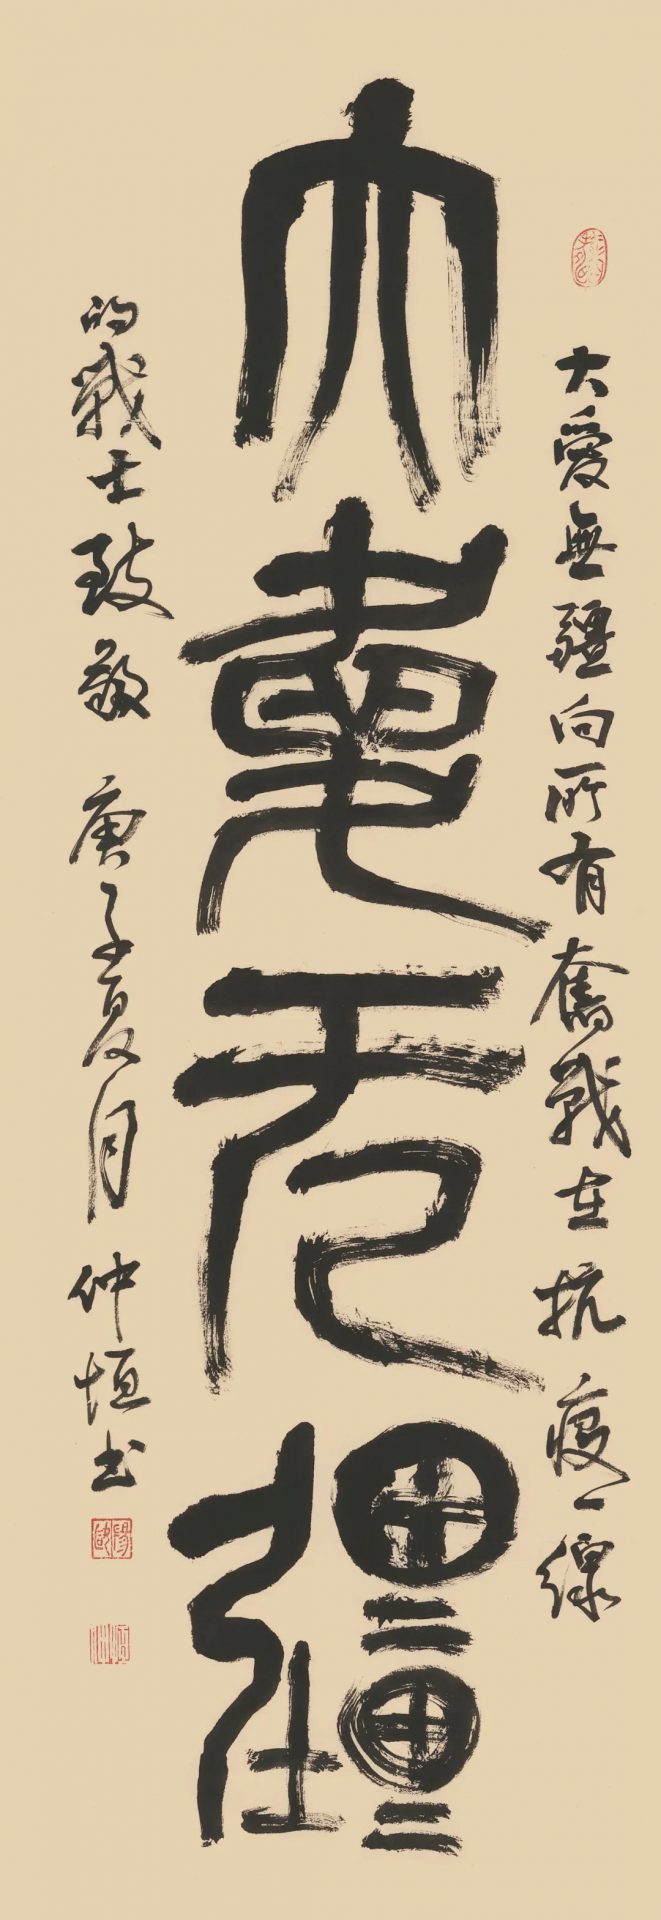 大爱无疆
大愛無疆向所有奮戰在抗疫一線
的戰士致敬 庚子夏月 仲恒书